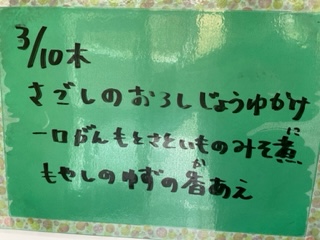 3/10木
さごしのおろしじょうゆかけ
一口がんもとさといものみそ煮に
もやしのゆずの香かあえ